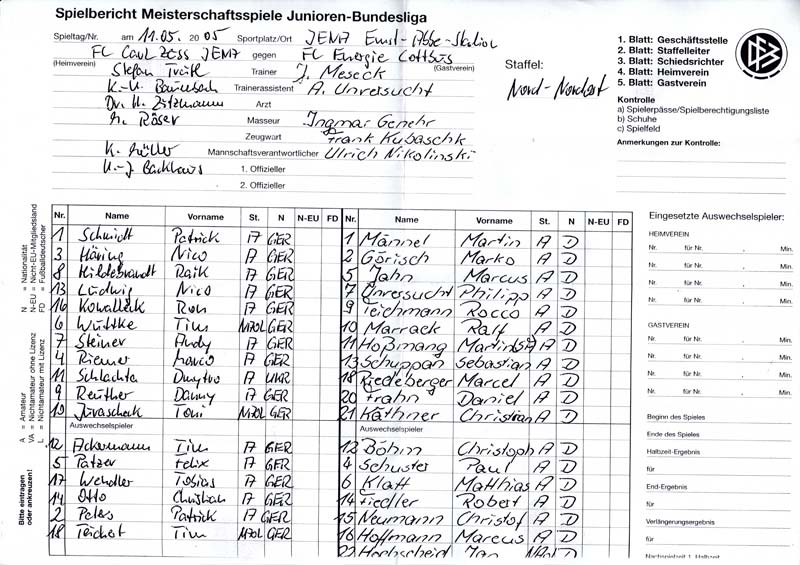 Spielbericht Meisterschaftsspiele Junioren-Bundesliga
Spieltag/Nr. am 11.05. 2005 Sportplatz/Ort JENA Ernst-Abbe-Stadion
FC Carl Zeiss JENA gegen FC Energie Cottbus
(Heimverein) (Gastverein)
Stefan Trainer J. Meseck
K.-U. Trainerassistent A. Unversucht
Dr. H. Zitzmann Arzt
Röser Masseur Ingmar Genehr
Zeugwart Frank Kubaschk
K. Müller Mannschaftsverantwortlicher Ulrich Nikolinski
H.-J. Backhaus 1. Offizieller
2. Offizieller
Staffel:
Nord-Nordost
1. Blatt: Geschäftsstelle
2. Blatt: Staffelleiter
3. Blatt: Schiedsrichter
4. Blatt: Heimverein
5. Blatt: Gastverein
Kontrolle
a) Spielerpässe/Spielberechtigungsliste
b) Schuhe
c) Spielfeld
Anmerkungen zur Kontrolle:
N = Nationalität
N-EU = Nicht-EU-Mitgliedsland
FD = Fußballdeutscher
A = Amateur
VA = Nichtamateur ohne Lizenz
L = Nichtamateur mit Lizenz
Bitte eintragen
oder ankreuzen!
Nr. Name Vorname St. N N-EU FD Nr. Name Vorname St. N N-EU FD
1 Schmidt Patrick A GER 1 Männel Martin A D
3 Häring Nico A GER 2 Görisch Marko A D
8 Hildebrandt Raik A GER 5 Jahn Marcus A D
13 Ludwig Nico A GER 7 Unversucht Philipp A D
16 Kowalleck Ron A GER 9 Teichmann Rocco A D
6 Wuttke Tim GER 10 Marrack Ralf A D
7 Steiner Andy A GER 11 Hoßmang Martin A D
4 Riemer Marco A GER 13 Schuppan Sebastian A D
11 Schlachta Dmytro A UKR 18 Riedeberger Marcel A D
9 Reuther Danny A GER 20 Frahn Daniel A D
10 Jovascheck Toni GER 21 Käthner Christian A D
Auswechselspieler Auswechselspieler
12 Ackermann Tim A GER 12 Böhm Christoph A D
5 Patzer Felix A GER 4 Schuster Paul A D
17 Wendler Tobias A GER 6 Klatt Matthias A D
14 Otto Christian A GER 14 Fiedler Robert A D
2 Peters Patrick A GER 15 Neumann Christof A D
18 Teichert Tim GER 16 Hoffmann Marcus A D
22 Hochscheid Jan D
Eingesetzte Auswechselspieler:
HEIMVEREIN
Nr. für Nr. , Min.
Nr. für Nr. , Min.
Nr. für Nr. , Min.
Nr. für Nr. , Min.
GASTVEREIN
Nr. für Nr. , Min.
Nr. für Nr. , Min.
Nr. für Nr. , Min.
Nr. für Nr. , Min.
Beginn des Spieles
Ende des Spieles
Halbzeit-Ergebnis
für
End-Ergebnis
für
Verlängerungsergebnis
für
Nachspielzeit 1. Halbzeit